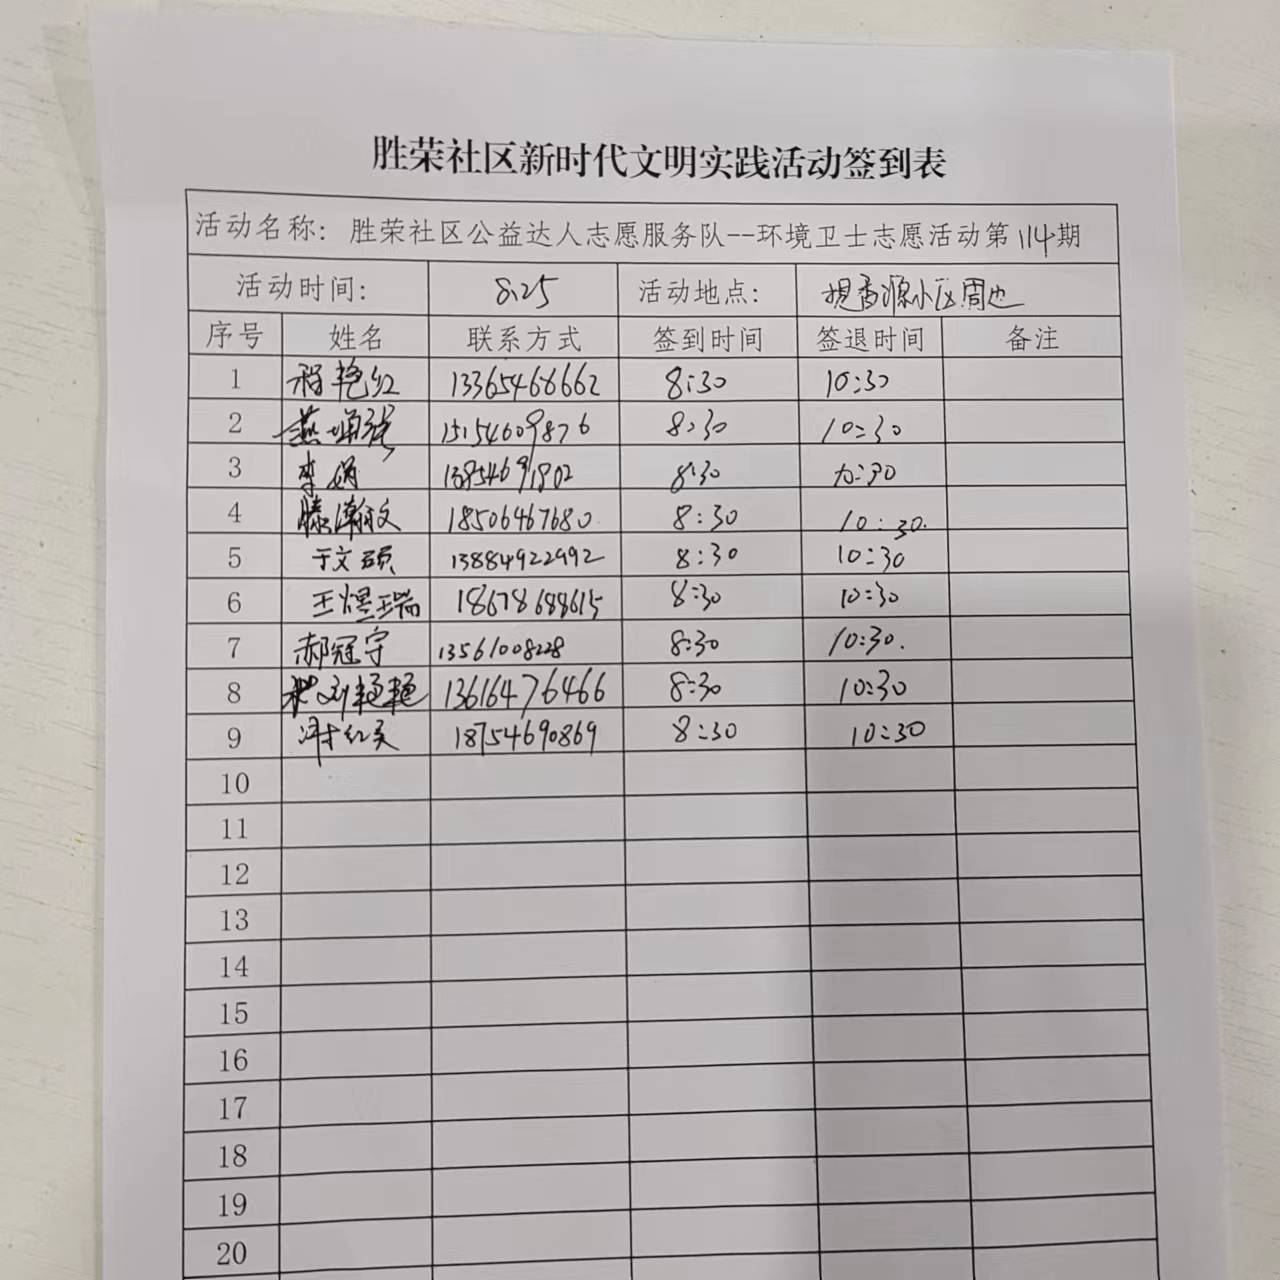 胜荣社区新时代文明实践活动签到表
活动名称：胜荣社区公益达人志愿服务队--环境卫士志愿活动第114期
活动时间： 8.25 活动地点： 香源小区周边
序号 姓名 联系方式 签到时间 签退时间 备注
1 程艳红 13365468662 8:30 10:30
2 15154609876 8:30 10:30
3 李娟 13854691802 8:30 10:30
4 滕瀚文 18506467680 8:30 10:30.
5 于文硕 13884922992 8:30 10:30
6 王煜瑞 18678688615 8:30 10:30
7 郝冠宇 13561008228 8:30 10:30.
8 刘艳艳 13616476466 8:30 10:30
9 18754690869 8:30 10:30
10
11
12
13
14
15
16
17
18
19
20